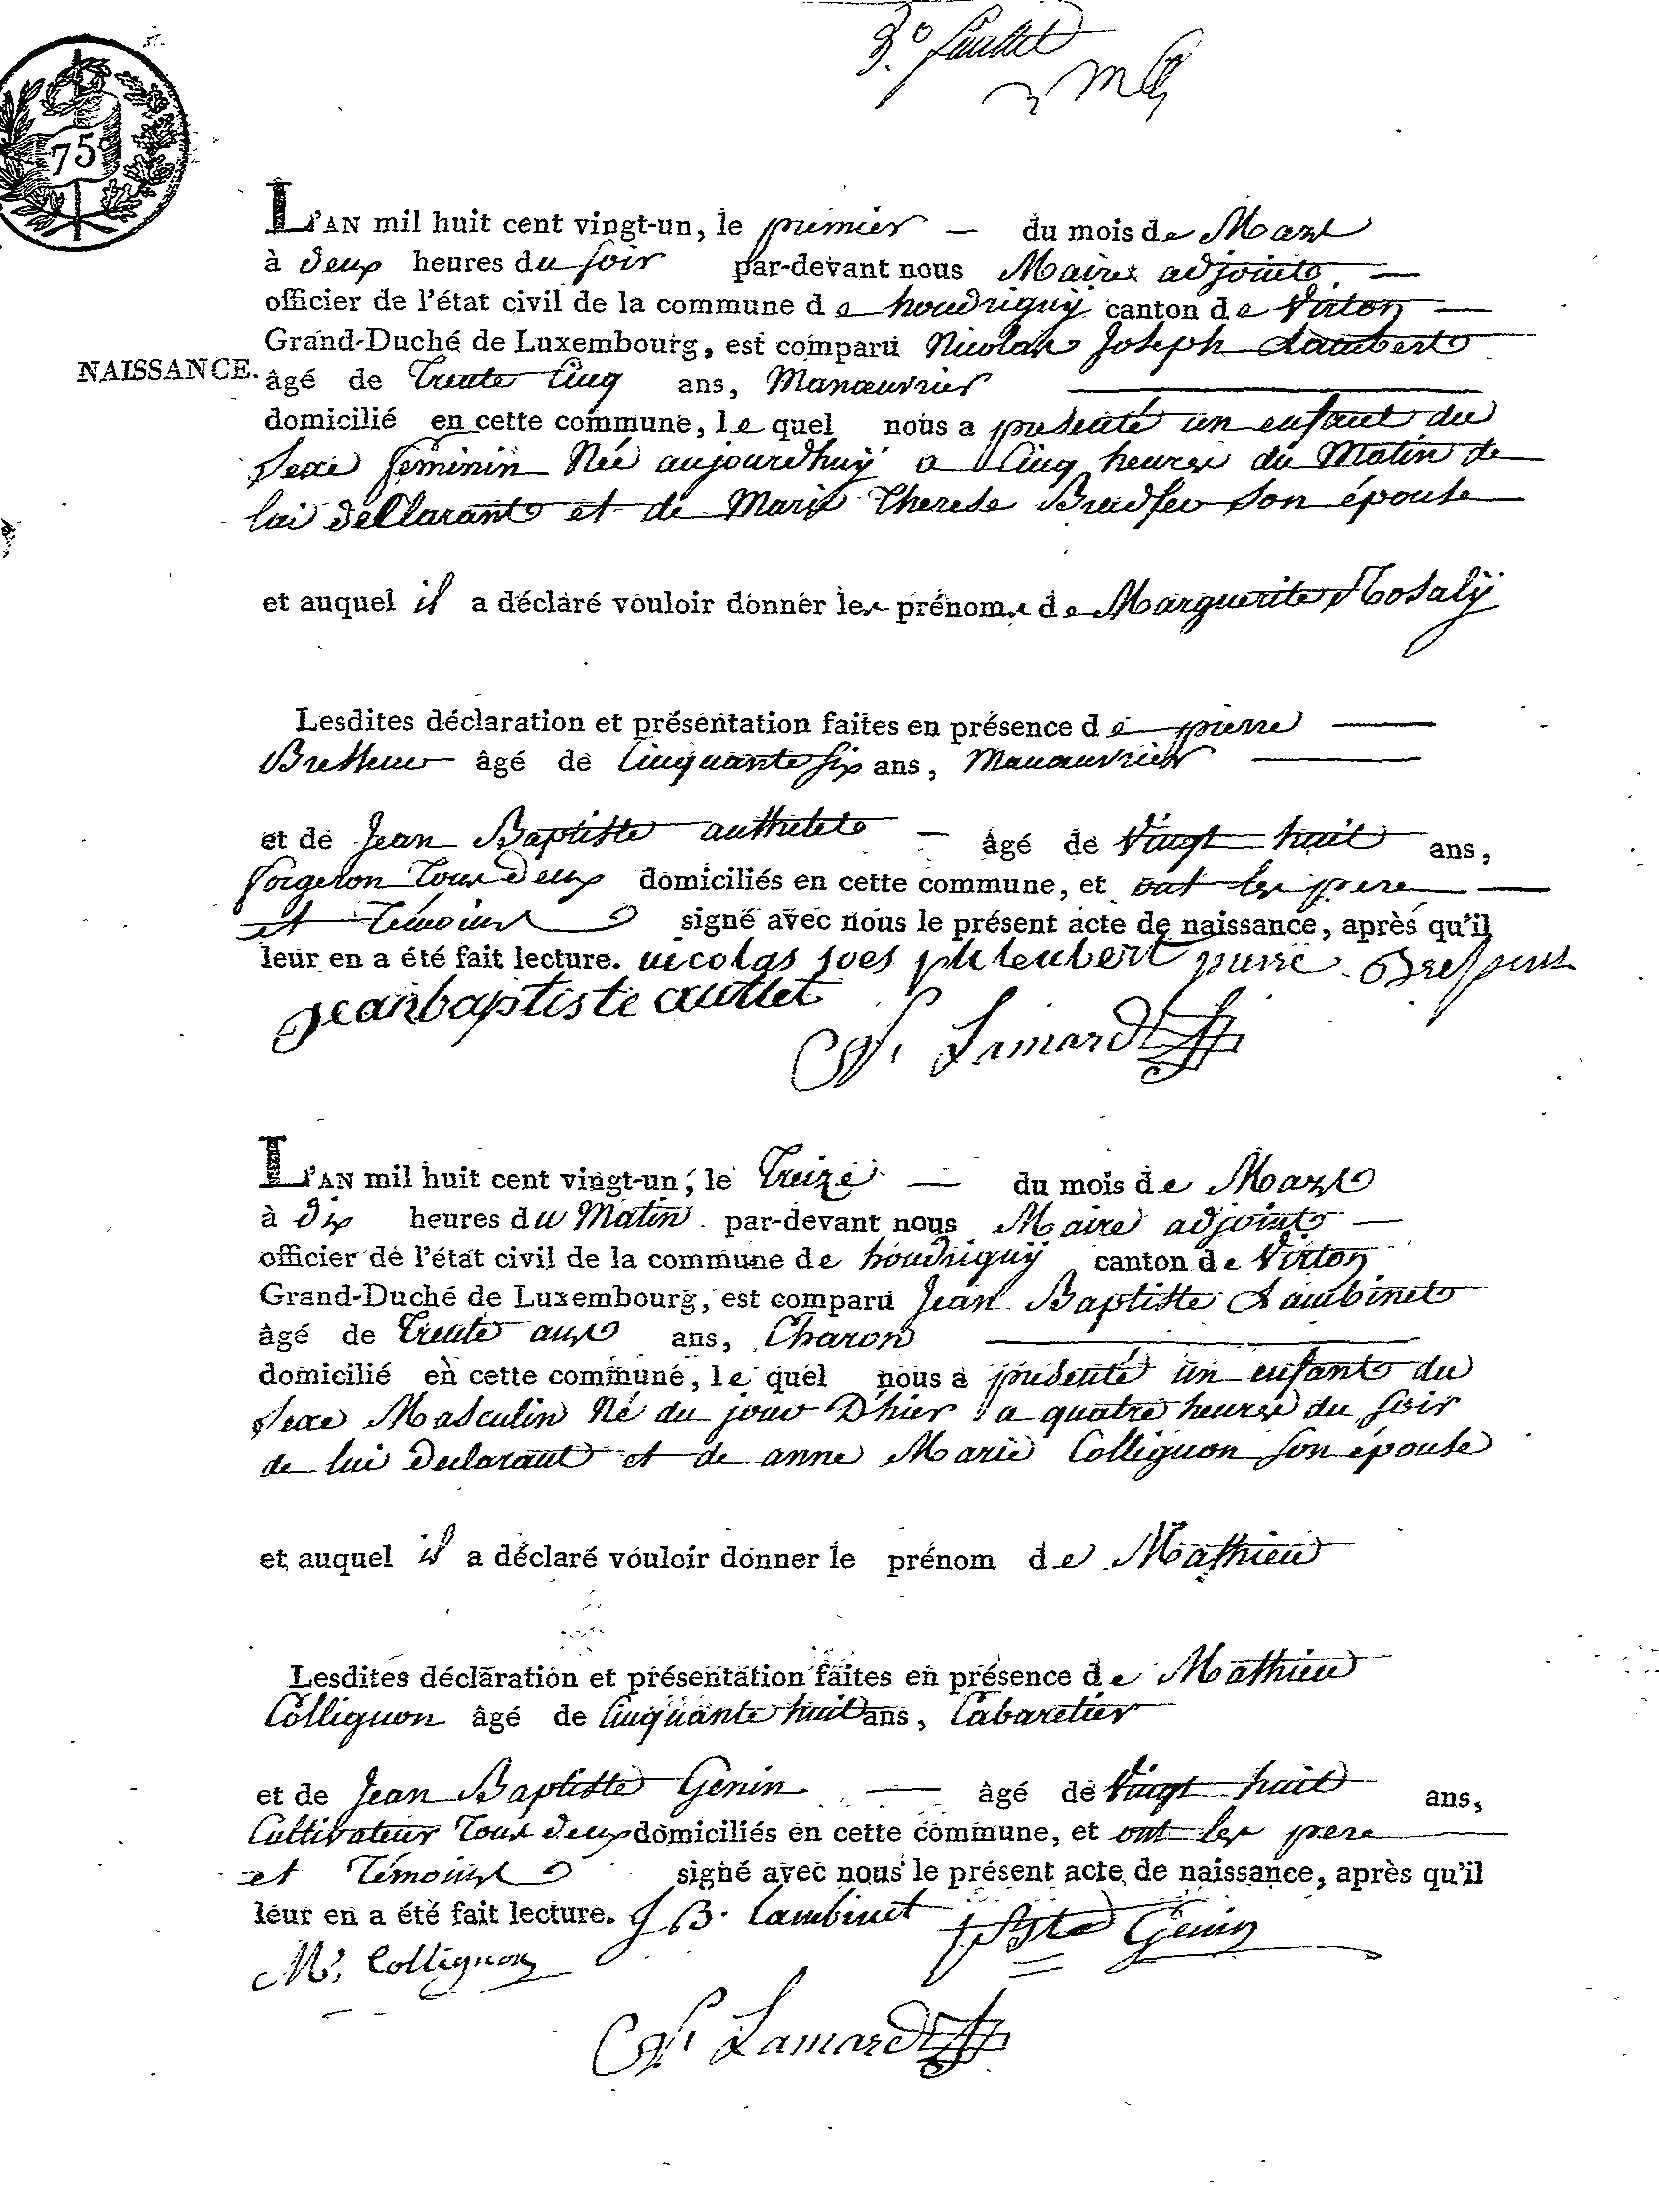 3.º feuillet
75
L'AN mil huit cent vingt-un, le premier — du mois de Mars
à deux heures du soir par-devant nous Maire adjoint —
officier de l'état civil de la commune de houdriguÿ canton de Virton —
Grand-Duché de Luxembourg, est comparu Nicolas Joseph Laubert
NAISSANCE.
âgé de Trente Cinq ans, Manœuvrier
domicilié en cette commune, le quel nous a présenté un enfant du
sexe féminin Née aujourdhuÿ a Cinq heures du Matin de
lui declarant et de Marie Therese son épouse
et auquel il a déclaré vouloir donner les prénoms de Marguerite Rosalÿ
Lesdites déclaration et présentation faites en présence de pierre —
âgé de Cinquante six ans, Manœuvrier —
et de Jean Baptiste — âgé de Vingt huit ans,
forgeron Tous deux domiciliés en cette commune, et ont les pere —
et Témoins signé avec nous le présent acte de naissance, après qu'il
leur en a été fait lecture. nicolas pierre
jean baptiste
Lamard
L'AN mil huit cent vingt-un, le Treize — du mois de Mars
à dix heures du Matin par-devant nous Maire adjoint —
officier de l'état civil de la commune de houdriguÿ canton de Virton
Grand-Duché de Luxembourg, est comparu Jean Baptiste Lambinet
âgé de Trente ans, Charon
domicilié en cette commune, le quel nous a présenté un enfant du
sexe Masculin Né du jour D'hier a quatre heures du soir
de lui declarant et de anne Marie Collignon son épouse
et auquel il a déclaré vouloir donner le prénom de Mathieu
Lesdites déclaration et présentation faites en présence de Mathieu
Collignon âgé de Cinquante huit ans, Cabaretier
et de Jean Baptiste Genin — âgé de Vingt huit ans,
Cultivateur Tous deux domiciliés en cette commune, et ont les pere —
et Témoins signé avec nous le présent acte de naissance, après qu'il
leur en a été fait lecture. J B. Lambinet J Bste Genin
M. Collignon
Lamard